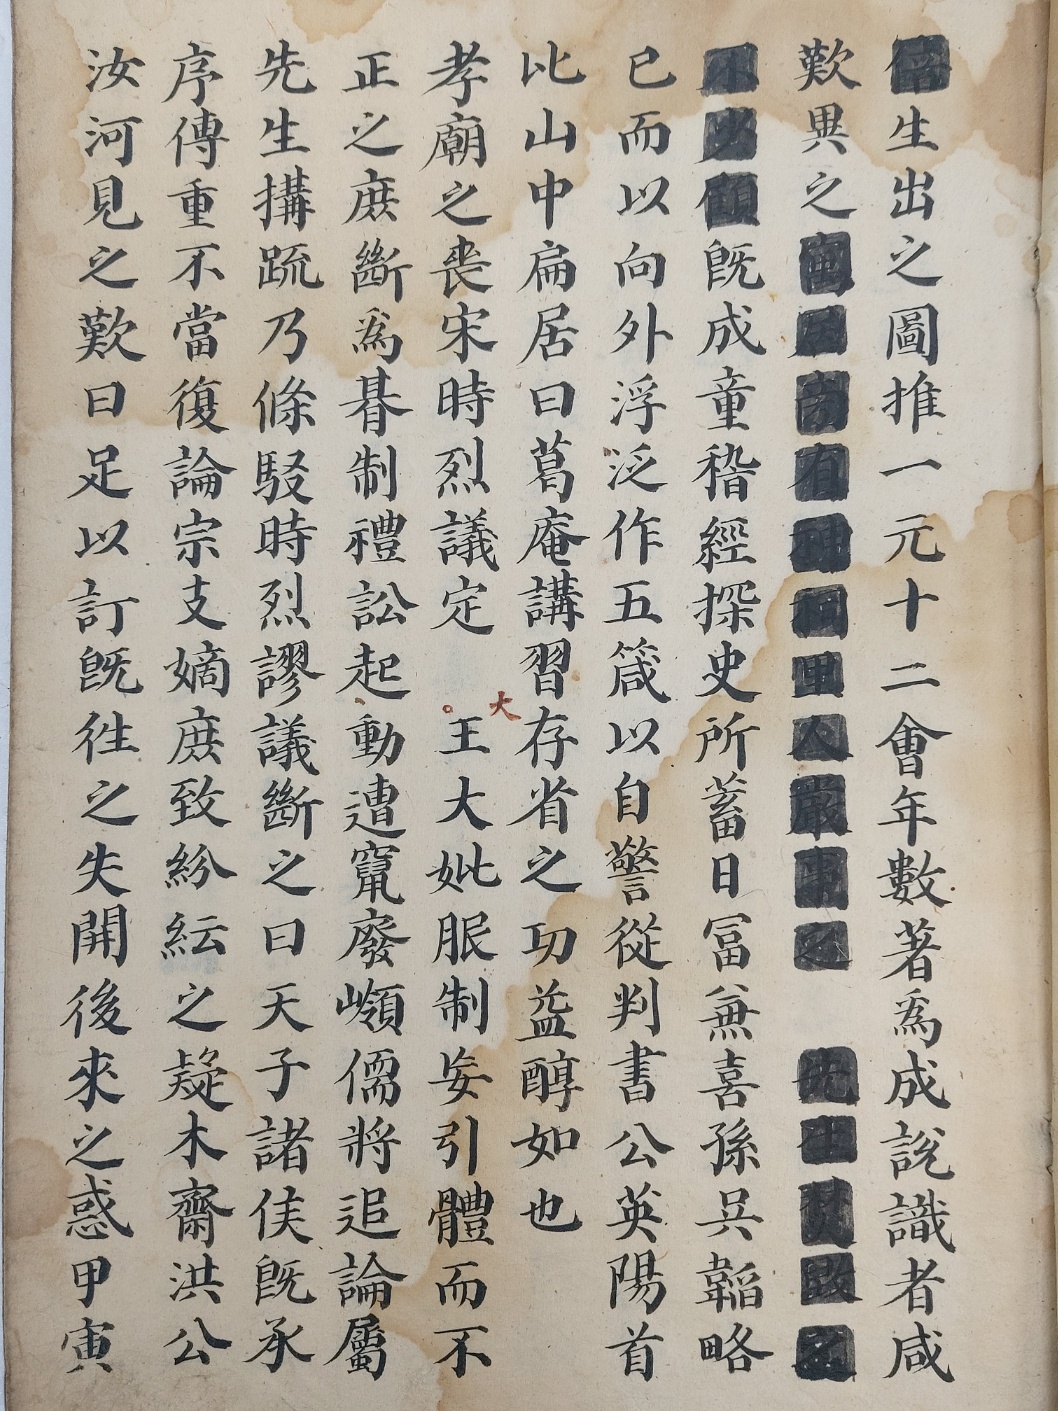 倍生出之圖推一元十二會年數著爲成說識者咸
歎異之有神祠里人嚴事之 先生焚毁之
不少顧旣成童稽經探史所蓄日冨兼喜孫吳韜略
已而以向外浮泛作五箴以自警從判書公英陽首
比山中扁居曰葛庵講習存省之功益醇如也
孝廟之喪宋時烈議定 王大妣服制妄引體而不
大
正之庶斷爲朞制禮訟起動遭竄廢嶺儒將追論屬
先生搆疏乃條駁時烈謬議斷之曰天子諸侯旣承
序傳重不當復論宗支嫡庶致紛紜之疑木齋洪公
汝河見之歎曰足以訂旣徃之失開後來之惑甲寅